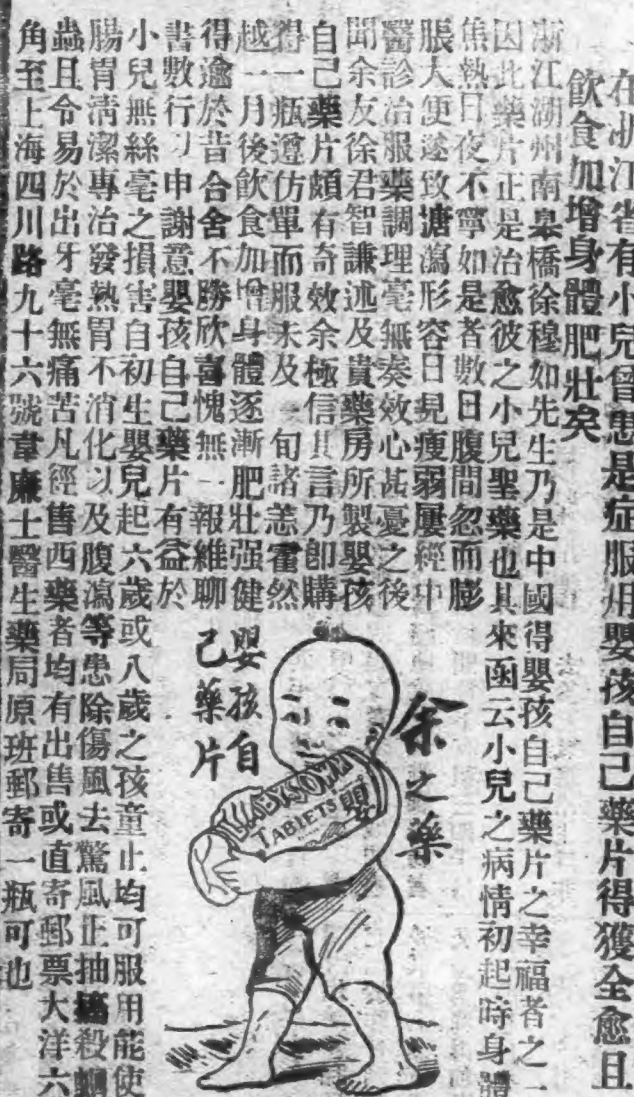 在浙江省有小兒曾患是症服用嬰孩自己藥片得獲全愈且
飲食加增身體肥壯矣
浙江湖州南皋橋徐穆如先生乃是中國得嬰孩自己藥片之幸福者之一
因此藥片正是治愈彼之小兒聖藥也其來函云小兒之病情初起時身體
焦熱日夜不寧如是者數日腹間忽而膨
脹大便遂致溏瀉形容日見瘦弱屢經中
醫診治服藥調理毫無奏效心甚憂之後
聞余友徐君智謙述及貴藥房所製嬰孩
自己藥片頗有奇效余極信其言乃即購
得一瓶遵仿單而服未及一旬諸恙霍然
越一月後飲食加增身體逐漸肥壯强健
得逾於昔合舍不勝欣喜愧無一報維聊
書數行以申謝意嬰孩自己藥片有益於
小兒無絲毫之損害自初生嬰兒起六歲或八歲之孩童止均可服用能使
腸胃清潔專治發熱胃不消化以及腹瀉等患除傷風去驚風止抽搐殺蛔
蟲且令易於出牙毫無痛苦凡經售西藥者均有出售或直寄郵票大洋六
角至上海四川路九十六號韋廉士醫生藥局原班郵寄一瓶可也
余之藥
嬰孩自
己藥片
BABYSOWN
TABLETS
嬰